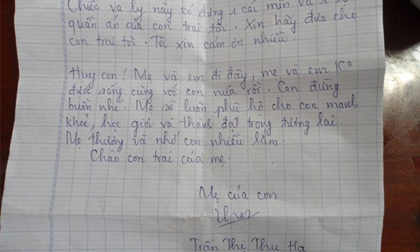 Chiếc va ly này có đựng 1 cái mền và
quần áo của con trai tôi. Xin hãy đưa cho
con trai tôi. Tôi xin cảm ơn nhiều.
Huy con! Mẹ và em đi đây, mẹ và em ko
đưa sống cùng với con nữa rồi. Con đừng
buồn nhé. Mẹ sẽ luôn phù hộ cho con mạnh
khoẻ, học giỏi và thành đạt trong tương lai
Mẹ thương và nhớ con nhiều lắm.
Chào con trai của mẹ.
Mẹ của con
Trần Thị Thu Hà